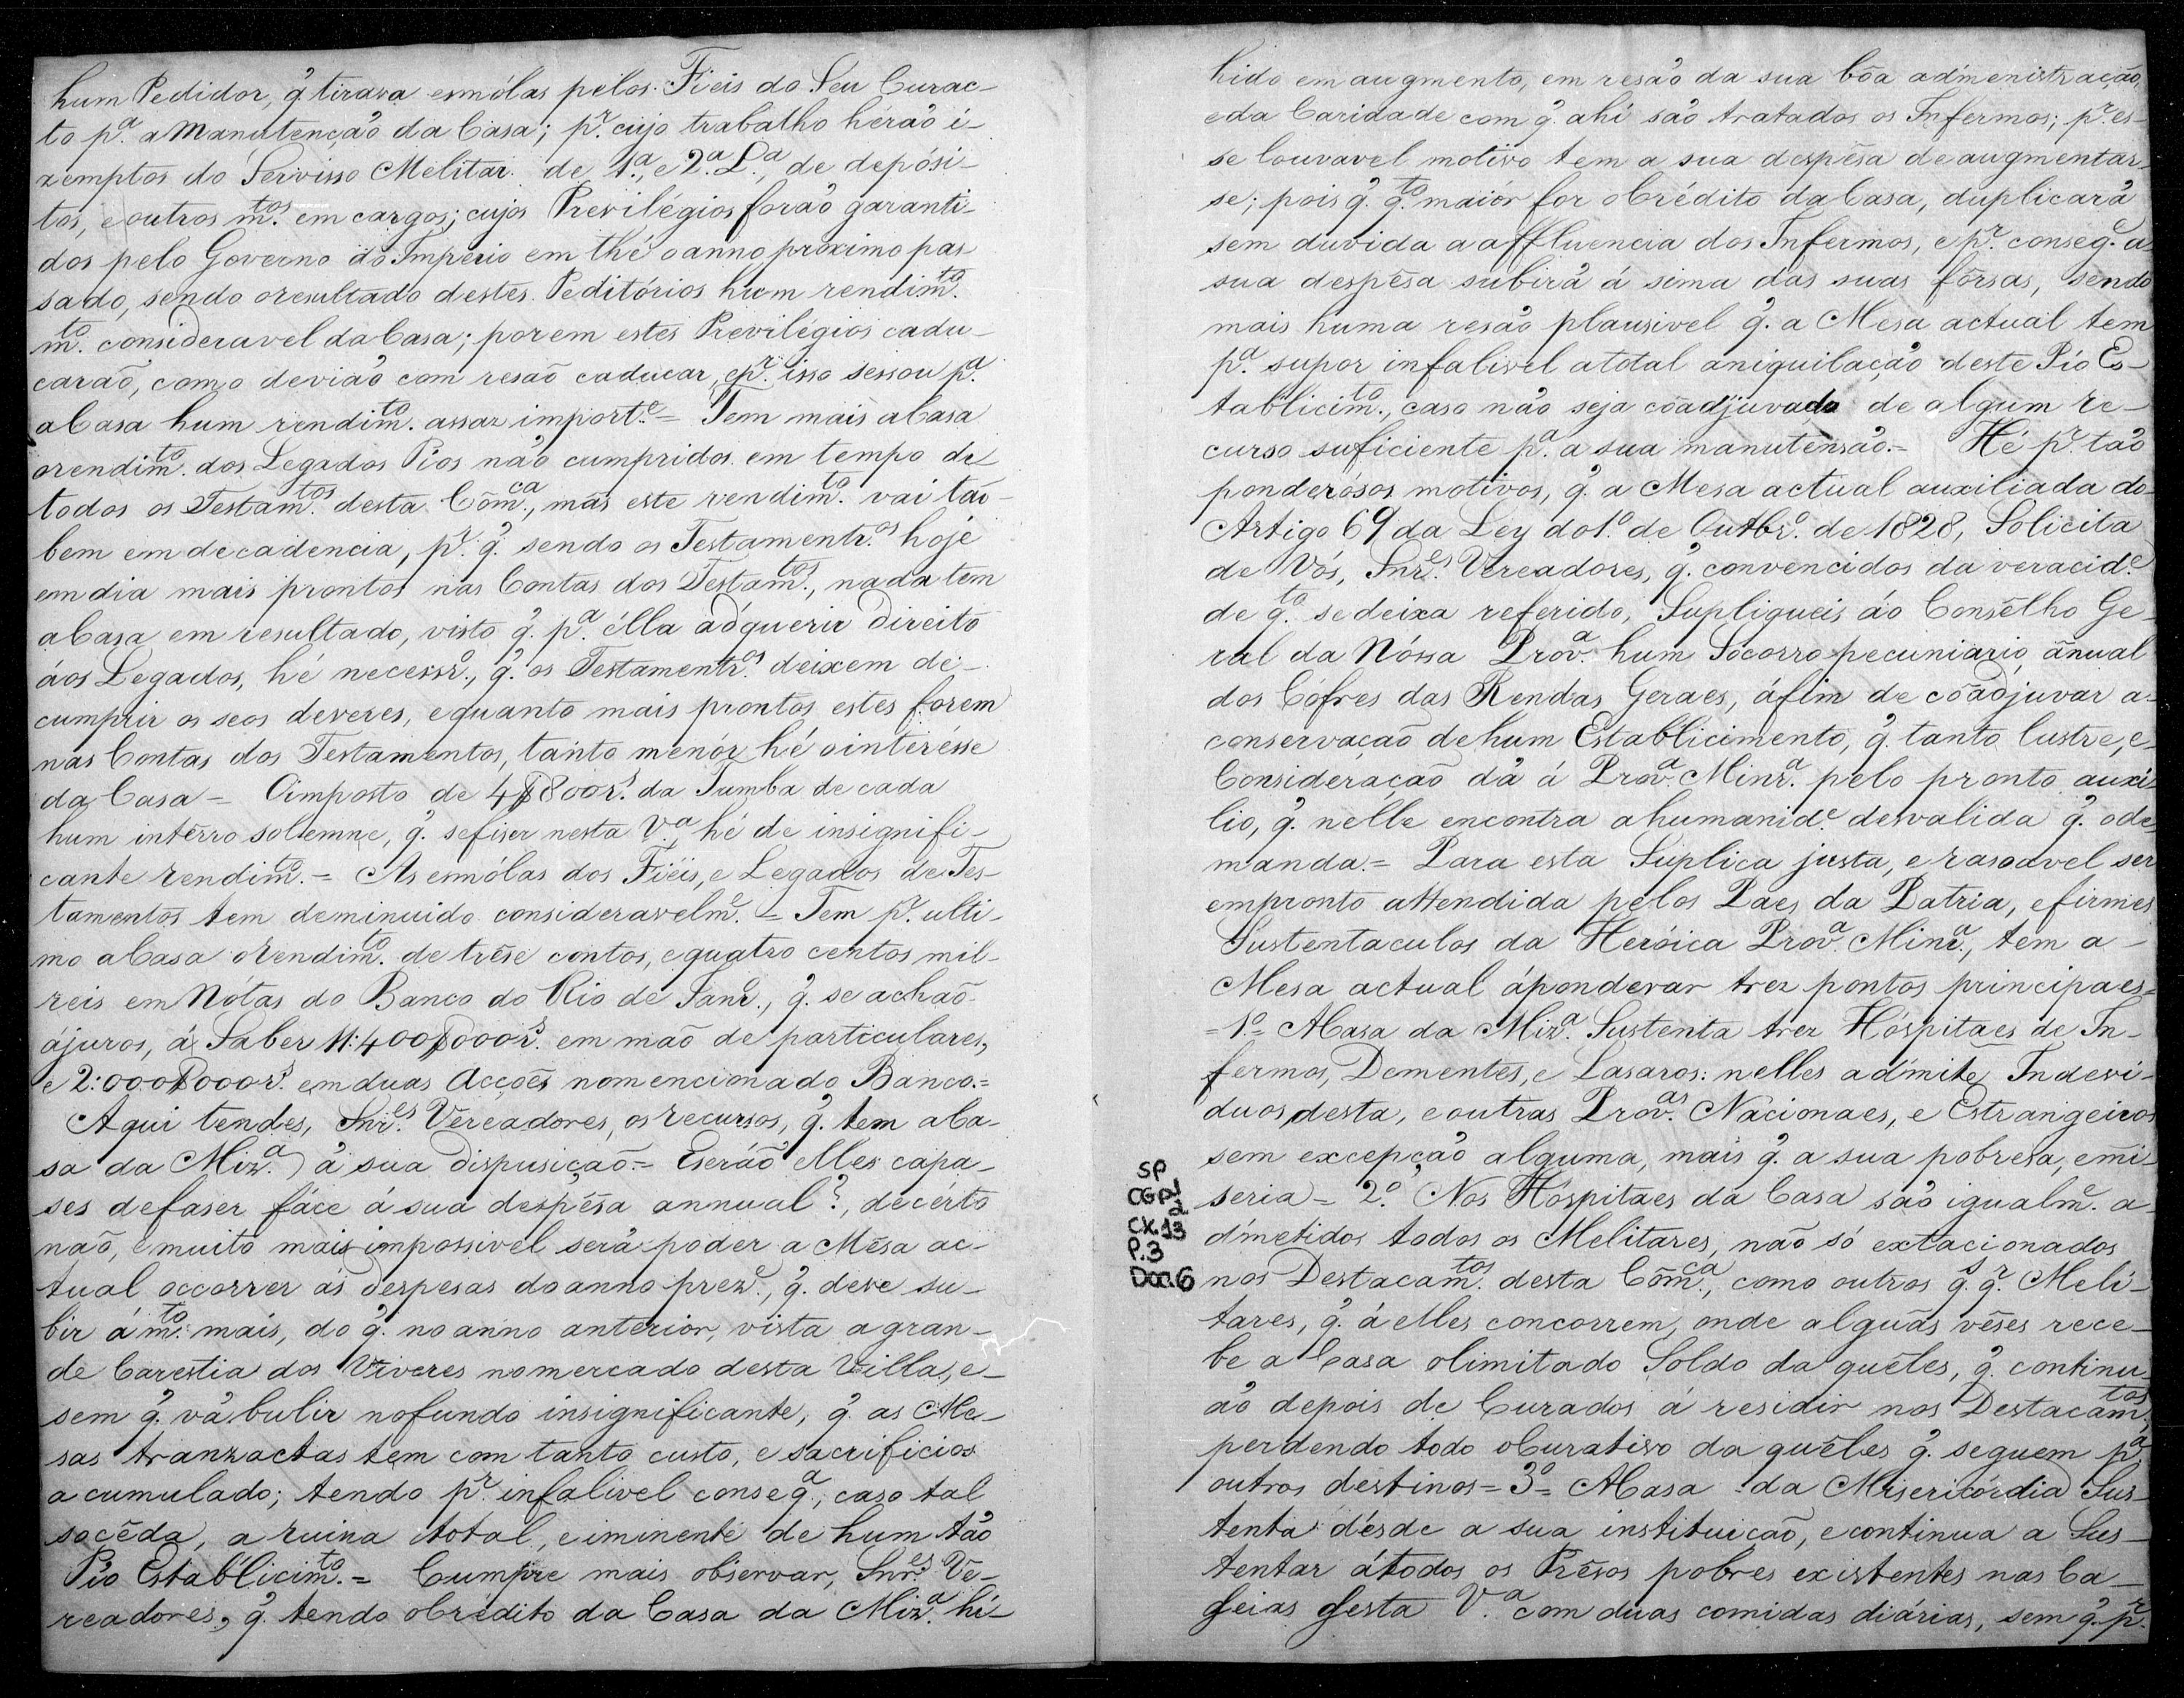 hum Pedidor, q̃. tirava esmólas pelos Fieis do Seu Curac-
to p.ª a Manutenção da Casa; p.r cujo trabalho hérão i-
zemptos do Servisso Melitar de 1.ª, e 2.ª L.ª, de depósi-
tos, e outros m.tos em cargos; cujos Previlégios forão garanti-
dos pelo Governo do Imperio em thé o anno proximo pas-
sado, sendo o resultado destes Peditórios hum rendim.to
m.to consideravel da Casa; porem estes Previlégios cadu-
carão, como devião com resão caducar, e p.r isso sessou p.ª
a Casa hum rendim.to assaz import.e = Tem mais a Casa
o rendim.to dos Legados Pios não cumpridos em tempo de
todos os Testam.tos desta Com.ca, mas este rendim.to vai tão-
bem em decadencia, p.r q̃. sendo os Testamentr.os hojé
em dia mais prontos nas Contas dos Testam.tos, nada tem
a Casa em resultado, visto q̃. p.ª élla adquerir direito
áos Legados, hé necessr.o, q̃. os Testamentr.os deixem de
cumprir os seos deveres, e quanto mais prontos estes forem
nas Contas dos Testamentos, tanto menór hé o interésse
da Casa = O imposto de 4$800r.s da Tumba de cada
hum intêrro solemne, q̃. se fiser nesta V.ª hé de insignifi-
cante rendim.to = As esmólas dos Fiéis, e Legados de Tes-
tamentos tem deminuido consideravelm.e = Tem p.r ulti-
mo a Casa o rendim.to de trêse contos, e quatro centos mil-
reis em Nótas do Banco do Rio de Janr.o, q̃. se achão
ájuros, á Saber 11:400$000r.s em mão de particulares,
e 2:000$000r.s em duas Acções no mencionado Banco.=
Aqui tendes, Snr.es Vereadores, os recursos, q̃. tem a Ca-
sa da Miz.ª á sua dispusição = E serão elles capa-
ses de faser fáce á sua despêsa annual?, de cérto
não, e muito mais impossivel será poder a Mêsa ac-
tual occorrer ás despesas do anno prez.e, q̃. deve su-
bir á m.to mais, do q̃. no anno anterior, vista a gran-
de Carestia dos Viveres no mercado desta Villa, e
sem q̃. vá bulir no fundo insignificante, q̃. as Me-
sas tranzactas tem com tanto custo, e sacrificios
a cumulado; tendo p.r infalivel conseq.ª, caso tal
socêda, a ruina total, e iminente de hum tão
Pio Establicim.to = Cumpre mais observar, Snr.es Ve-
readores, q̃. tendo o Crédito da Casa da Miz.ª hi-
hido em augmento, em resão da sua bôa admenistração,
e da Caridade com q̃. ahi são tratados os Infermos; p.r es-
se louvavel motivo tem a sua despêsa de augmentar-
se; pois q̃. q.to maiór for o Crédito da Casa, duplicará
sem duvida a affluencia dos Infermos, e p.r conseq.e a
sua despêsa subirá á sima das suas fôrsas, sendo
mais huma resão plausivel q̃. a Mesa actual tem
p.ª supor infalivel a total aniquilação deste Pio Es-
tablicim.to, caso não seja coadjuvada de algum re-
curso suficiente p.ª a sua manutensão.= Hé p.r tão
ponderósos motivos, q̃. a Mesa actual auxiliada do
Artigo 69 da Ley do 1.º de Outbr.o de 1828, Solicita
de Vós, Snr.es Vereadores, q̃. convencidos da veracid.e
de q.to se deixa referido, Supliqueis áo Consêlho Ge-
ral da Nóssa Prov.ª hum Socorro pecuniario annual
dos Cófres das Rendas Geraes, áfim de coadjuvar a
conservação de hum Establicimento, q̃. tanto lustre, e
Consideração dá á Prov.ª Minr.ª pelo pronto auxi-
lio, q̃. nelle encontra a humanid.e desvalida q̃. o de
manda = Para esta Suplica justa, e rasoavel ser
em pronto attendida pelos Paes da Patria, e firmes
Sustentaculos da Heróica Prov.ª Minr.ª, tem a
Mesa actual áponderar trez pontos principaes
= 1.º = A Casa da Miz.ª Sustenta trez Hóspitaes de In-
fermos, Dementes, e Lasaros: nelles admite Indevi-
duos desta, e outras Prov.as Nacionaes, e Estrangeiros
sem excepção alguma, mais q̃. a sua pobresa, e mi-
seria = 2.º Nos Hóspitaes da Casa são igualm.e a-
dmetidos todos os Melitares, não só extacionados
nos Destacam.tos desta Com.ca, como outros q.s q.r Meli-
tares, q̃. á elles concorrem, onde algũas vêses rece-
be a Casa o limitado Soldo da quêles, q̃. continu-
ão depois de Curados á residir nos Destacam.tos
perdendo todo o Curativo da quêles q̃. seguem p.ª
outros destinos = 3.º = A Casa da Misericórdia Sus-
tenta désde a sua instituição, e continua a Sus-
tentar átodos os Prêsos pobres existentes nas Ca-
deias desta V.ª com duas comidas diárias, sem q̃. p.r
SP
CGP1
2
CX.13
P.3
Doc.6